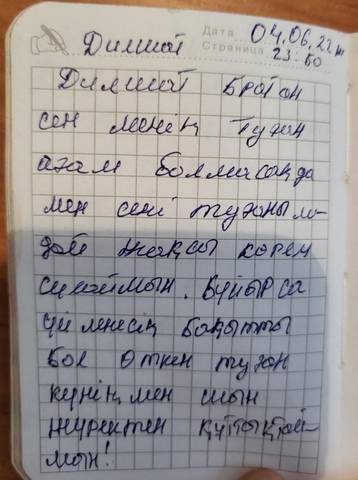 Дата 04.06.22ж
Дилшат Страница 23:50
Дилшат братан
сен менің туған
ағам болмасаңда
мен сені туғаныма-
дай жақсы көрем
сыйлаймын. Бұйырса
үйленесің бақытты
бол өткен туған
күнің мен шын
жүректен құттықтай-
мын!